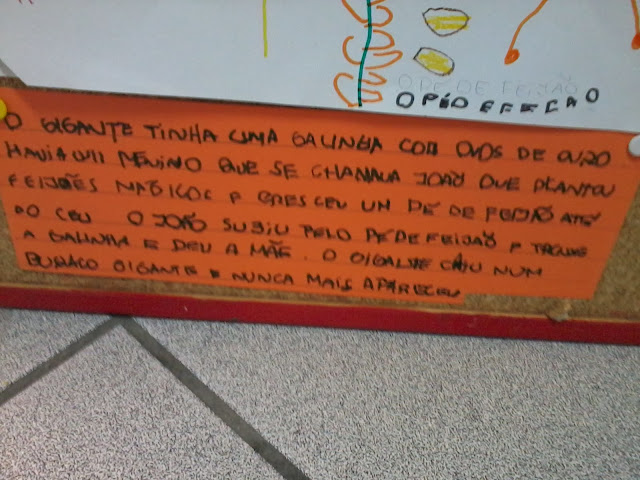 O PÉ DE FEIJÃO
O PÉD E FEGAO
O GIGANTE TINHA UMA GALINHA COM OVOS DE OURO
HAVIA UM MENINO QUE SE CHAMAVA JOÃO QUE PLANTOU
FEIJÕES MÁGICOS E CRESCEU UM PÉ DE FEIJÃO ATÉ
AO CEU O JOÃO SUBIU PELO PÉ DE FEIJÃO E TROUXE
A GALINHA E DEU A MÃE. O GIGANTE CAIU NUM
BURACO GIGANTE E NUNCA MAIS APARECEU